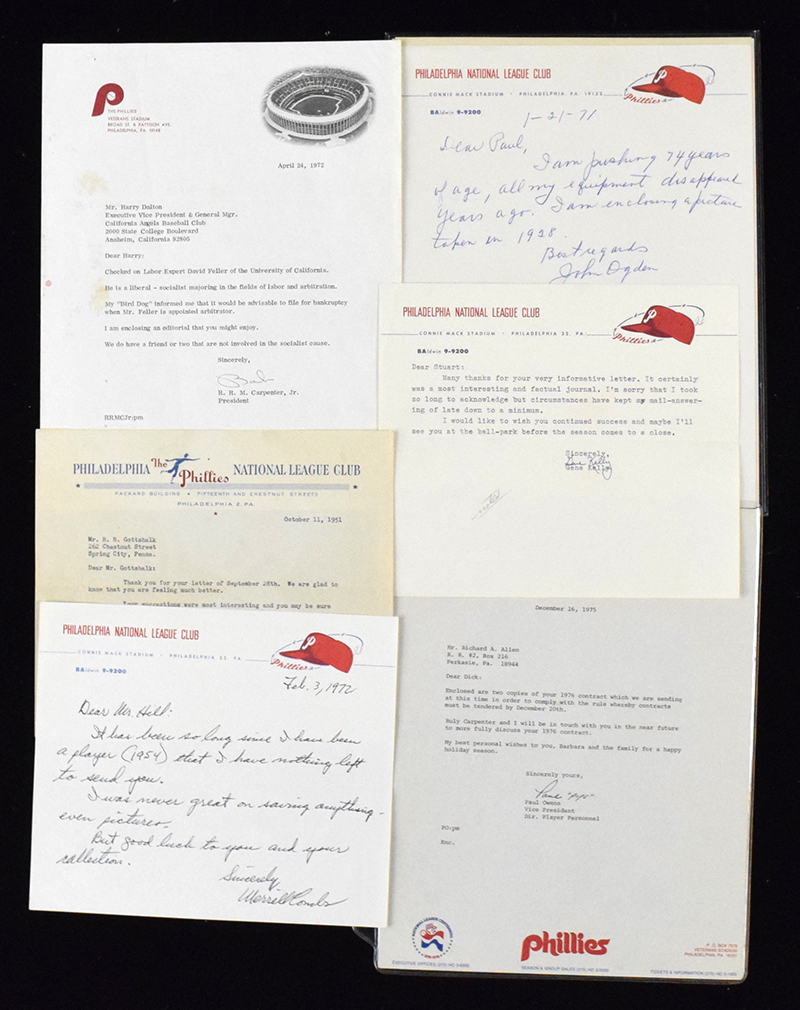 THE PHILLIES
VETERANS STADIUM
BROAD ST. & PATTISON AVE.
PHILADELPHIA, PA. 19148
April 24, 1972
Mr. Harry Dalton
Executive Vice President & General Mgr.
California Angels Baseball Club
2000 State College Boulevard
Anaheim, California 92805
Dear Harry:
Checked on Labor Expert David Feller of the University of California.
He is a liberal - socialist majoring in the fields of labor and arbitration.
My "Bird Dog" informed me that it would be advisable to file for bankruptcy
when Mr. Feller is appointed arbitrator.
I am enclosing an editorial that you might enjoy.
We do have a friend or two that are not involved in the socialist cause.
Sincerely,
Bob
R. R. M. Carpenter, Jr.
President
RRMCJr:pm
PHILADELPHIA NATIONAL LEAGUE CLUB
CONNIE MACK STADIUM · PHILADELPHIA PA 19132
P
Phillies
BAldwin 9-9200
1-21-71
Dear Paul,
I am pushing 74 years
of age, all my equipment disappeared
years ago. I am enclosing a picture
taken in 1928.
Best regards
John Ogden
PHILADELPHIA NATIONAL LEAGUE CLUB
CONNIE MACK STADIUM · PHILADELPHIA 32, PA.
P
Phillies
BAldwin 9-9200
Dear Stuart:
Many thanks for your very informative letter. It certainly
was a most interesting and factual journal. I'm sorry that I took
so long to acknowledge but circumstances have kept my mail-answer-
ing of late down to a minimum.
I would like to wish you continued success and maybe I'll
see you at the ball-park before the season comes to a close.
Sincerely,
Gene Kelly
Gene Kelly
PHILADELPHIA The Phillies NATIONAL LEAGUE CLUB
PACKARD BUILDING • FIFTEENTH AND CHESTNUT STREETS
PHILADELPHIA 2, PA.
October 11, 1951
Mr. R. R. Gottshalk
262 Chestnut Street
Spring City, Penna.
Dear Mr. Gottshalk:
Thank you for your letter of September 28th. We are glad to
know that you are feeling much better.
Your suggestions were most interesting and you may be sure
PHILADELPHIA NATIONAL LEAGUE CLUB
CONNIE MACK STADIUM · PHILADELPHIA 32, PA.
P
Phillies
BAldwin 9-9200
Feb. 3, 1972
Dear Mr. Hill:
It has been so long since I have been
a player (1954) that I have nothing left
to send you.
I was never great on saving anything -
even pictures.
But good luck to you and your
collection.
Sincerely
Merrill Combs
December 16, 1975
Mr. Richard A. Allen
R. R. #2, Box 216
Perkasie, Pa. 18944
Dear Dick:
Enclosed are two copies of your 1976 contract which we are sending
at this time in order to comply with the rule whereby contracts
must be tendered by December 20th.
Ruly Carpenter and I will be in touch with you in the near future
to more fully discuss your 1976 contract.
My best personal wishes to you, Barbara and the family for a happy
holiday season.
Sincerely yours,
Paul "Pope"
Paul Owens
Vice President
Dir. Player Personnel
PO:pm
Enc.
Phillies
P. O. BOX 7575
VETERANS STADIUM
PHILADELPHIA, PA. 19101